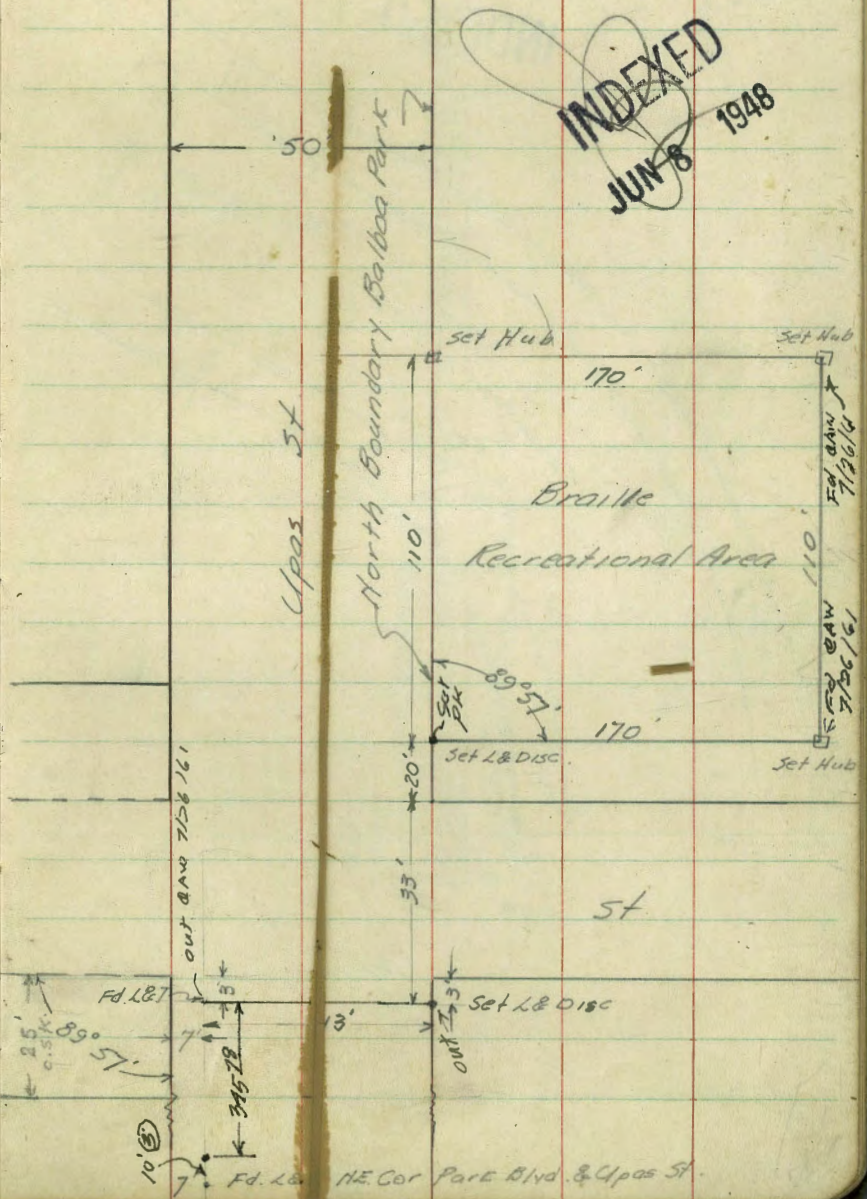 INDEXED
JUN 8 1948
50
North Boundary Balboa Park
Upas St
Set Hub
Set Hub
170'
Braille
Recreational Area
110'
110'
Fd
7/26/61
Fd
7/26/61
89° 57'
Set PK
170'
Set L& Disc.
Set Hub
20'
out 7/26/61
33'
St
Fd. L&T
3'
3'
Set L& Disc
out
25'
c.s.k.
89° 57'
7'
345.78
10'
7'
Fd. L&
N.E. Cor Park Blvd. & Upas St.